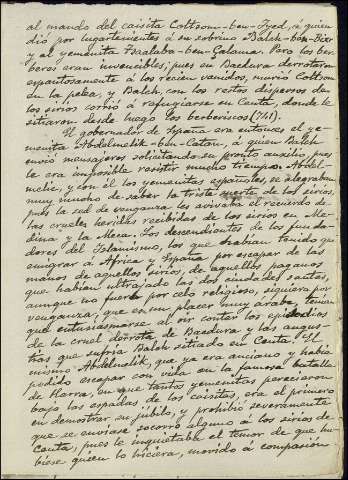 al mando del caisita Coltsom-ben-Iyad, á quien
dió por lugartenientes á su sobrino Balch-ben-Bixr
y al yemenita Tsalaba-ben-Salama. Pero los ber-
beres eran invencibles; pues en Bacdura derrotaron
espantosamente á los recien venidos, murió Coltsom
en la pelea, y Balch, con los restos dispersos de
los sirios corrió á refugiarse en Ceuta, donde le
sitiaron desde luego los berberiscos (741).
El gobernador de España era entonces el ye-
menita Abdelmelik-ben-Catan, á quien Balch
envió mensajeros solicitando su pronto auxilio, pues
le era imposible resistir mucho tiempo. Abdel-
melic, y con él los yemenitas españoles, se alegraban
muy mucho de saber la triste suerte de los sirios,
pues la sed de venganza les avivaba el recuerdo de
las crueles heridas recibidas de los sirios en Me-
dina y la Meca. Los descendientes de los funda-
dores del Islamismo, los que habían tenido que
emigrar á África y España por escapar de las
manos de aquellos sirios, de aquellos paganos
que habían ultrajado las dos ciudades santas,
aunque no fuera por celo religioso, siquiera por
venganza, que es un placer muy árabe, tenían
que entusiasmarse al oir contar los episodios
de la cruel derrota de Bacdura y las angus-
tias que sufría Balch sitiado en Ceuta. El
mismo Abdelmelik, que ya era anciano y había
podido escapar con vida en la famosa batalla
de Harra, en que tantos yemenitas perecieron
bajo las espadas de los caisitas, era el primero
en demostrar su júbilo, y prohibió severamente
que se enviase socorro alguno á los sirios de
Ceuta, pues le inquietaba el temor de que hu-
biese quien lo hiciera, movido á compasión